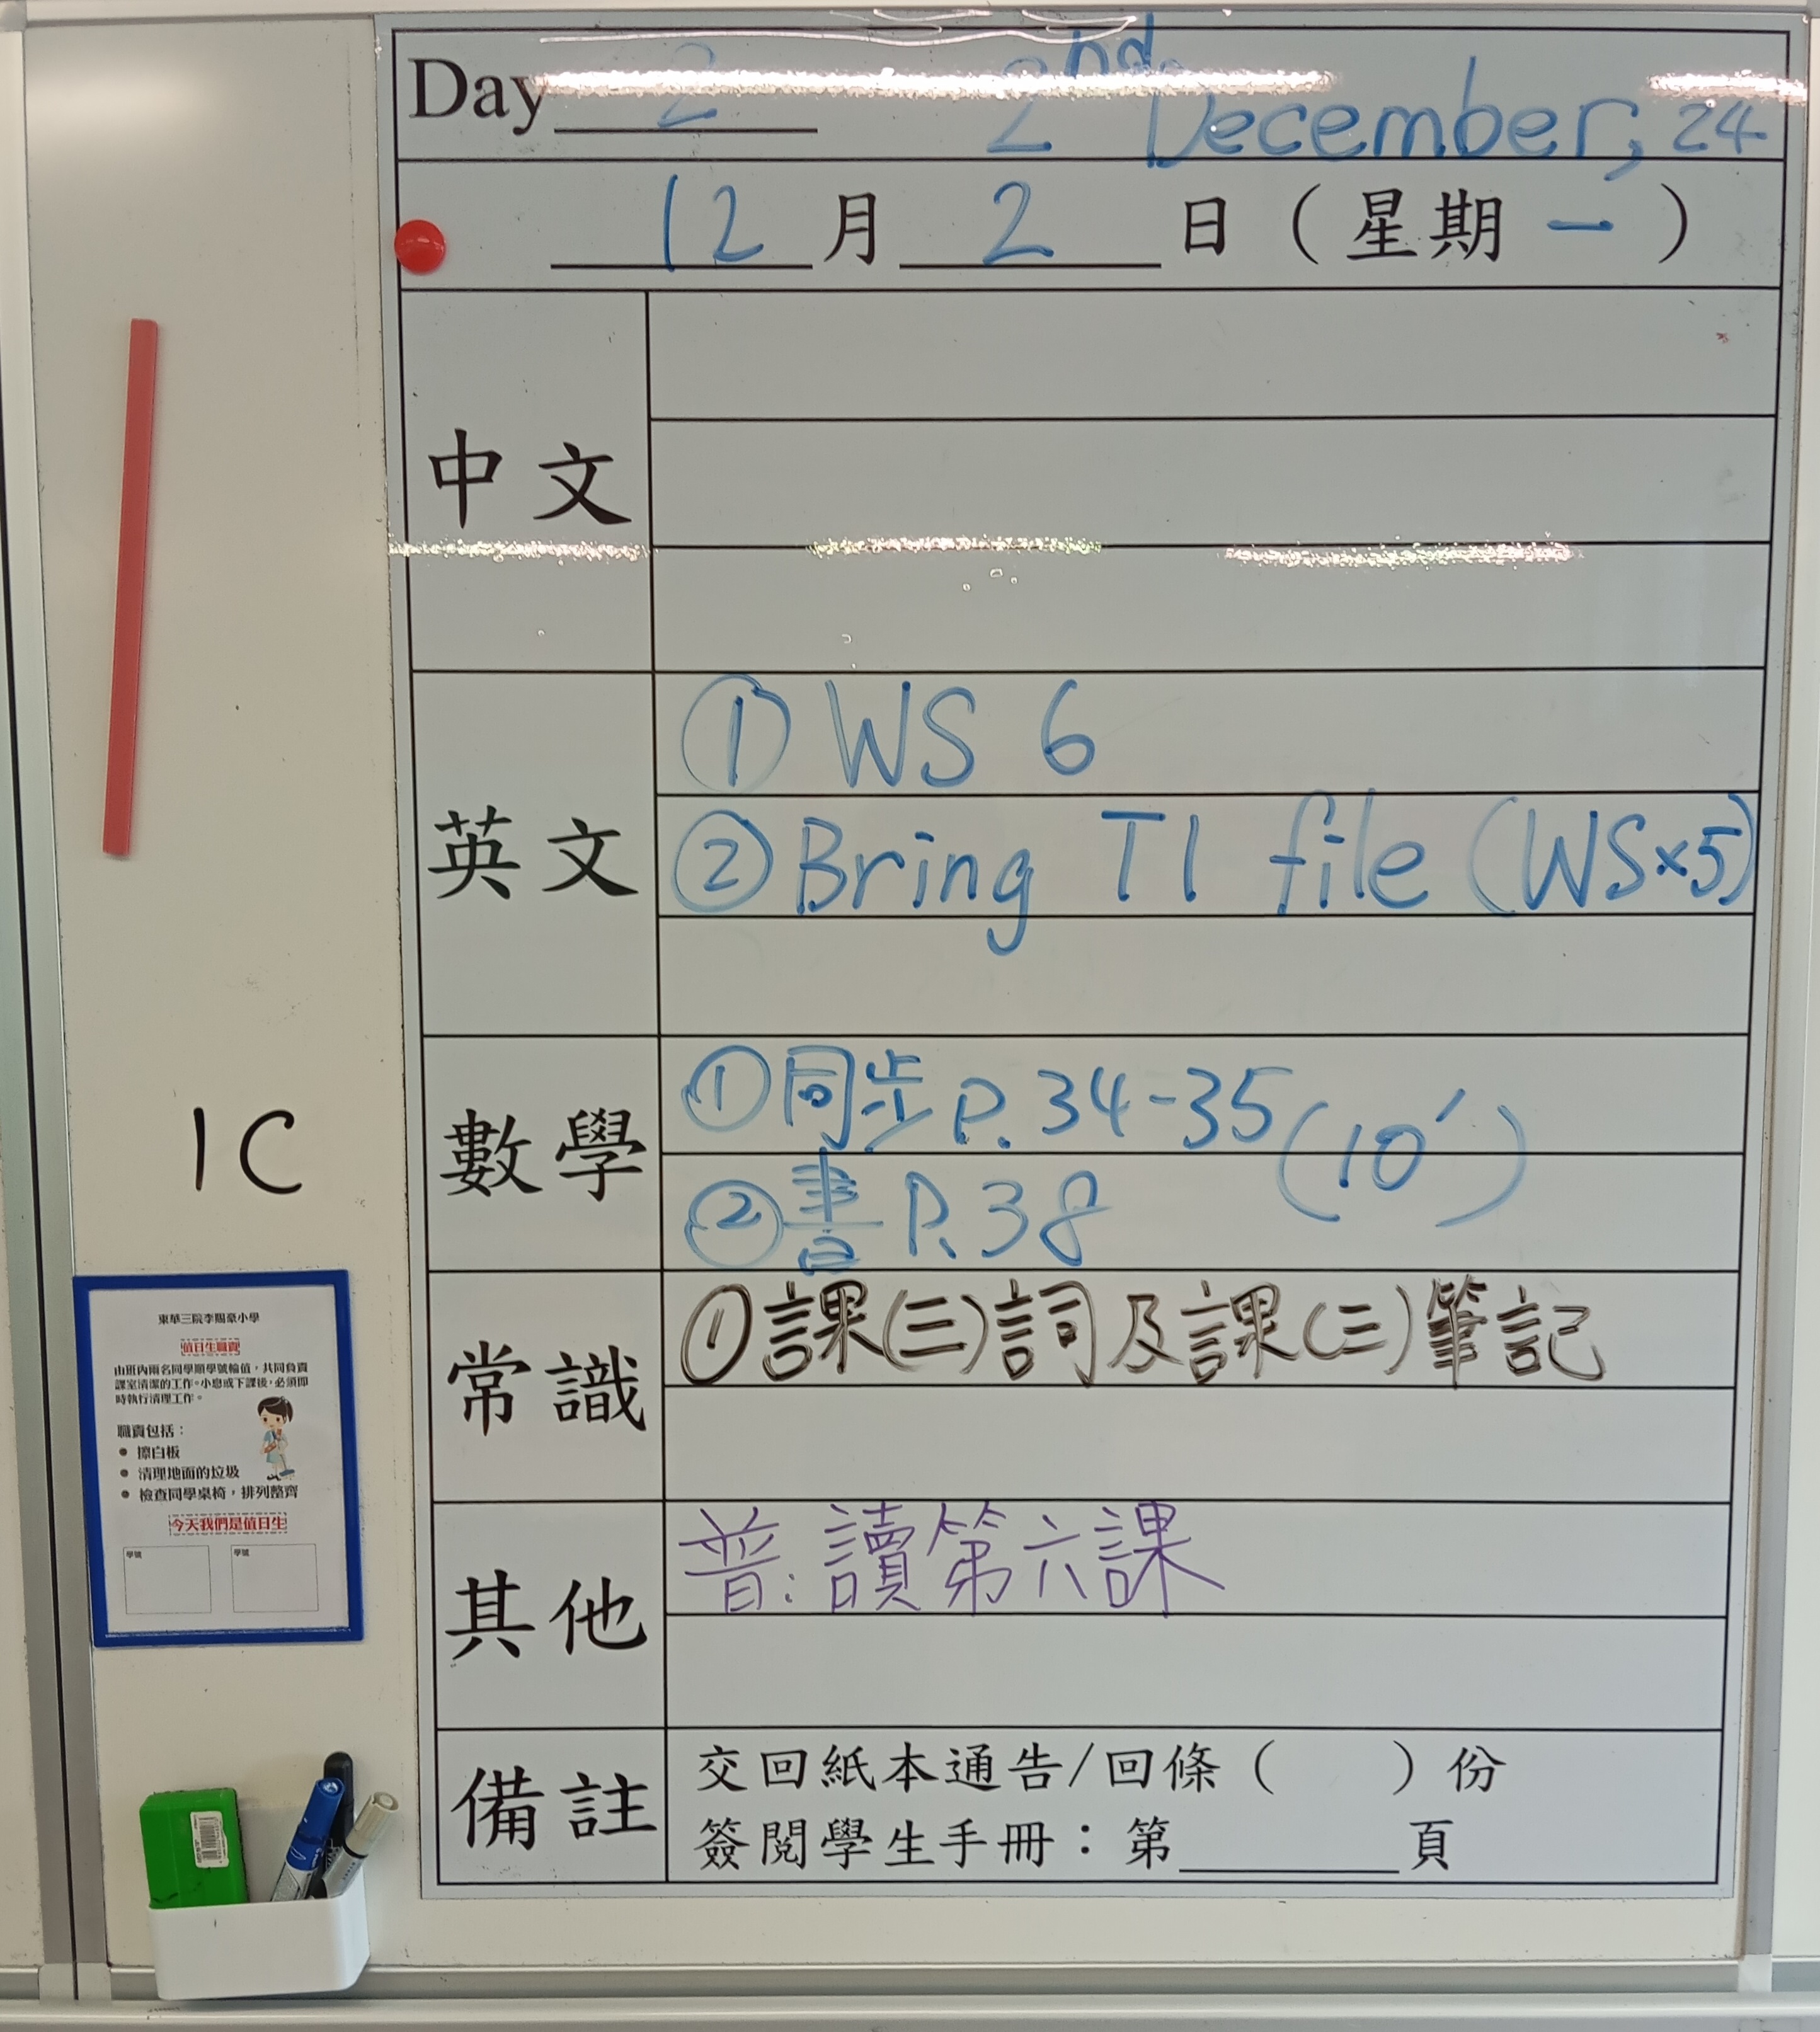 Day 2 2nd December, 24
12月2日（星期一）
中文
英文
① WS 6
② Bring T1 file (WS×5)
數學
①同步 P.34-35
(10')
②書 P.38
常識
①課(三)詞及課(三)筆記
其他
普:讀第六課
備註
交回紙本通告/回條（　　）份
簽閱學生手冊：第＿＿＿頁
1C
東華三院李賜豪小學
值日生職責
由班內兩名同學順學號輪值，共同負責
課室清潔的工作。小息或下課後，必須即
時執行清理工作。
職責包括：
● 擦白板
● 清理地面的垃圾
● 檢查同學桌椅，排列整齊
今天我們是值日生
學號 學號